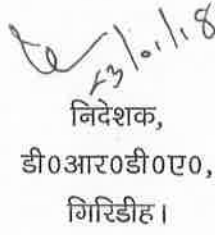 23/01/18
निदेशक,
डी०आर०डी०ए०,
गिरिडीह।